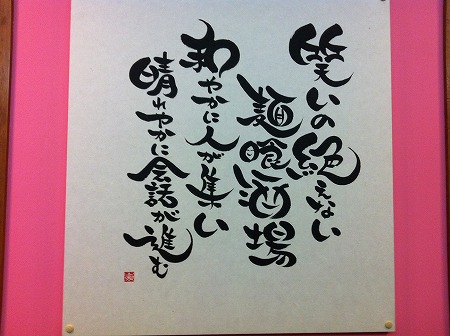 笑いの絶えない
麺喰酒場
和やかに人が集い
晴れやかに会話が進む